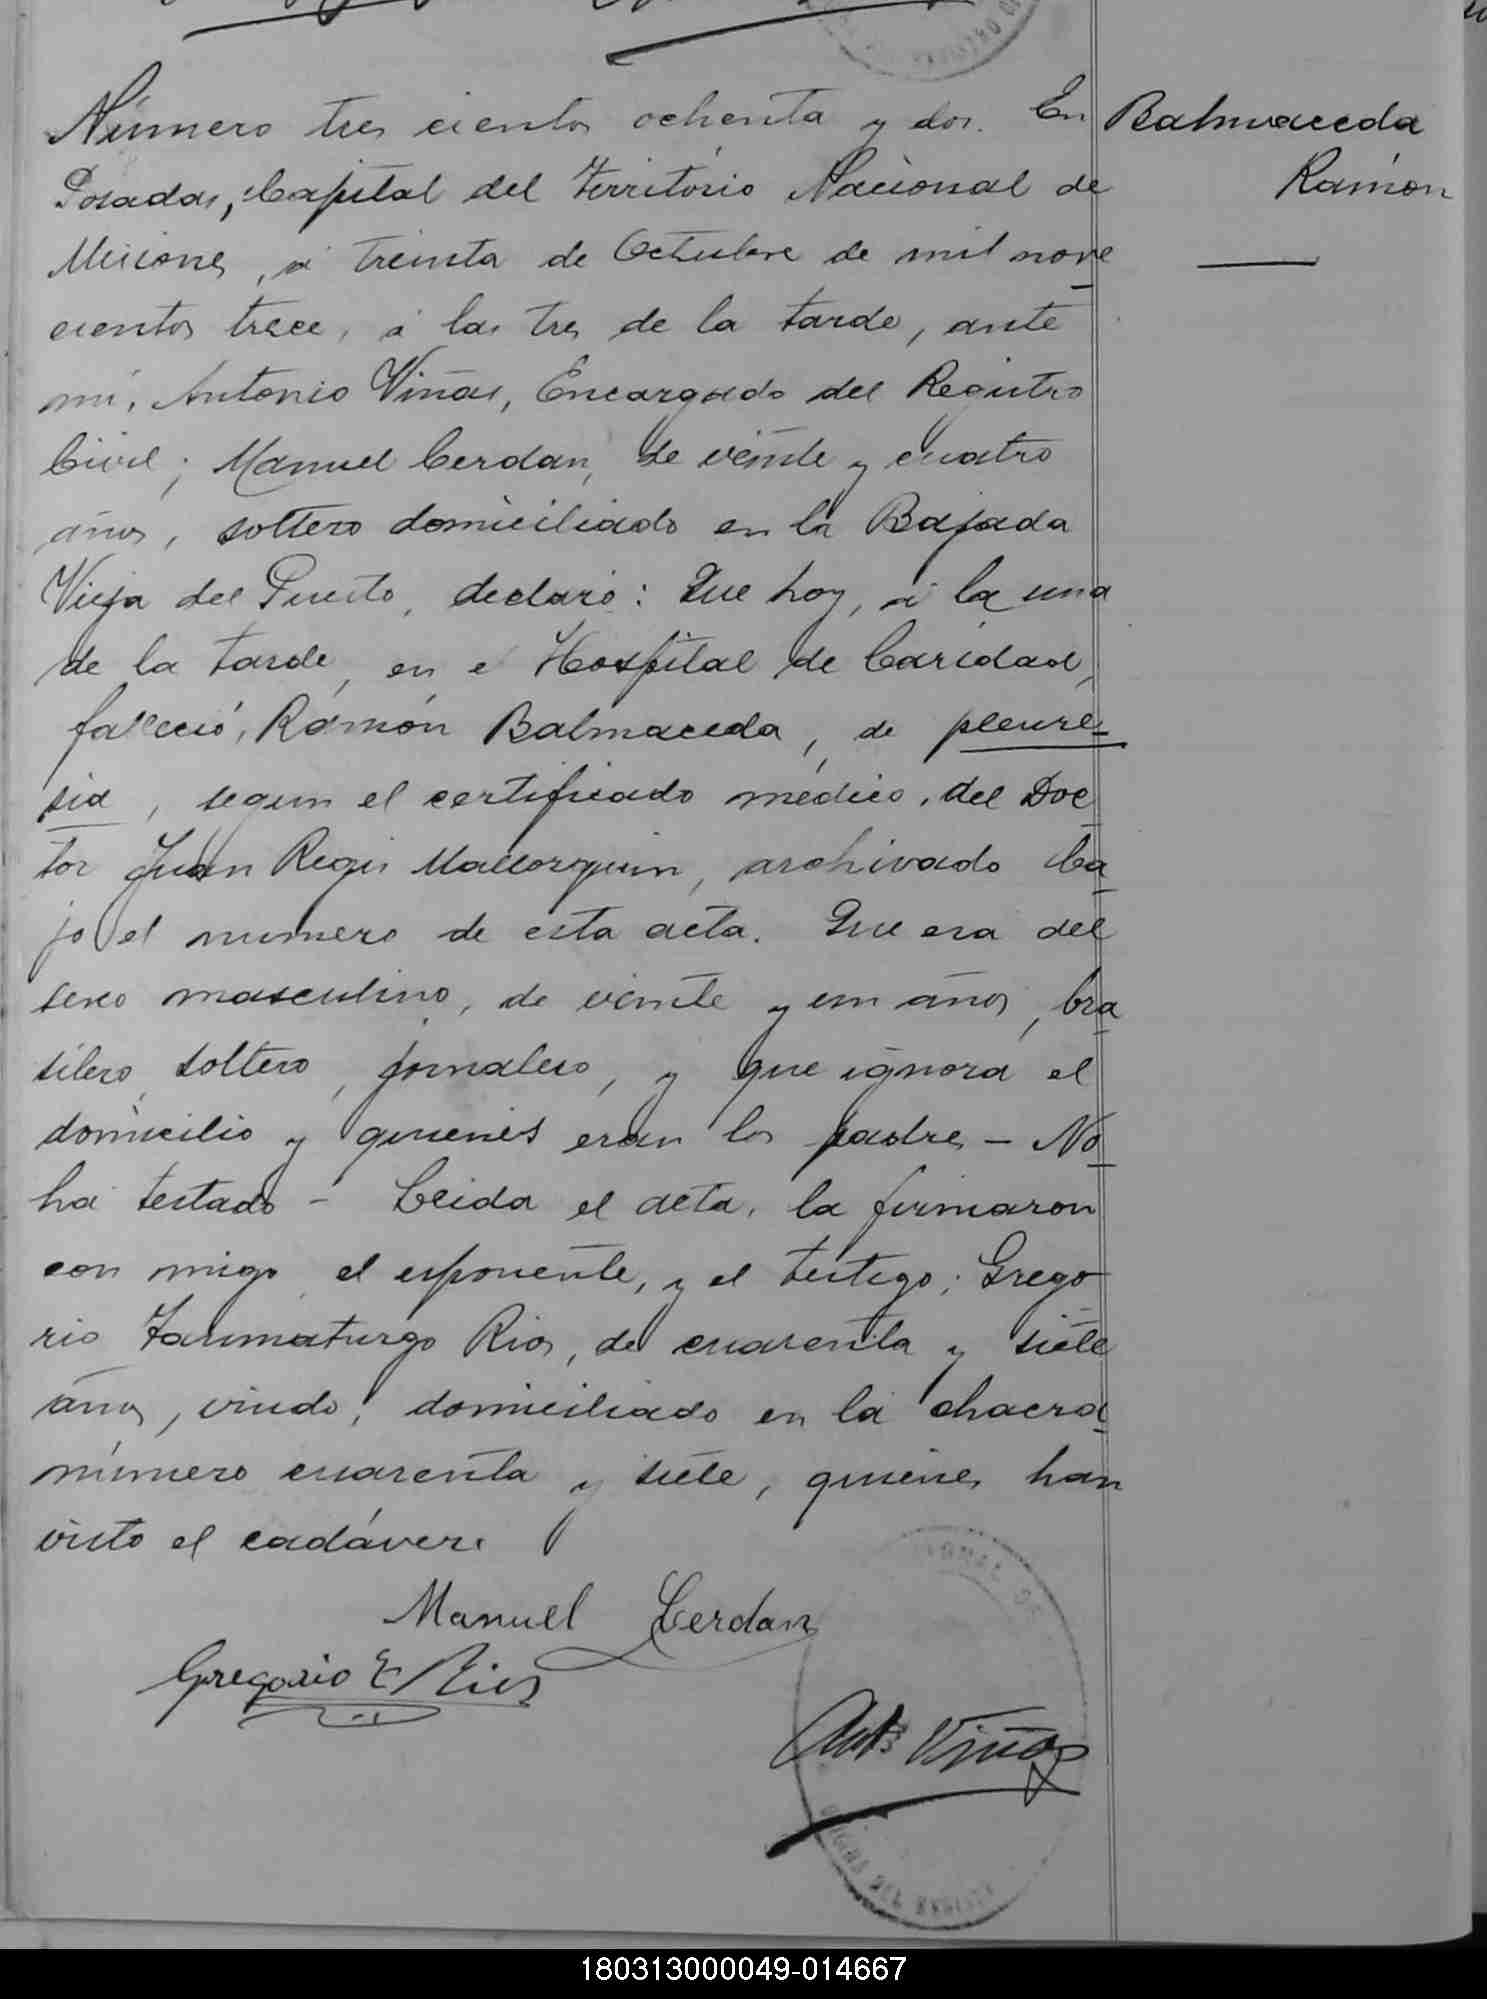 Número tres cientos ochenta y dos. En
Posadas, Capital del Território Nacional de
Misiones, á treinta de Octubre de mil nove
cientos trece, á las tres de la tarde, ante
mi, Antonio Viñas, Encargado del Registro
Civil; Manuel Cerdan, de veinte y cuatro
años, soltero domiciliado en la Bajada
Vieja del Puerto, declaró: Que hoy, á la una
de la tarde, en el Hospital de Caridad,
falleció, Ramón Balmaceda, de pleure-
sia, segun el certificado médico, del Doc
tor Juan Regis Mallorquin, archivado ba-
jo el numero de esta acta. Que era del
sexo masculino, de veinte y un años, bra-
silero, soltero, jornalero, y que ignora el
domicilio y quienes eran los padres - No
ha testado - Leida el acta, la firmaron
con migo el esponente, y el testigo; Grego
rio Taumaturgo Rios, de cuarenta y siete
años, viudo, domiciliado en la chacra
número cuarenta y siete, quienes han
visto el cadáver.
Balmaceda
Ramón
Manuel Cerdan
Gregorio T Rios
Anto Viñas
180313000049-014667